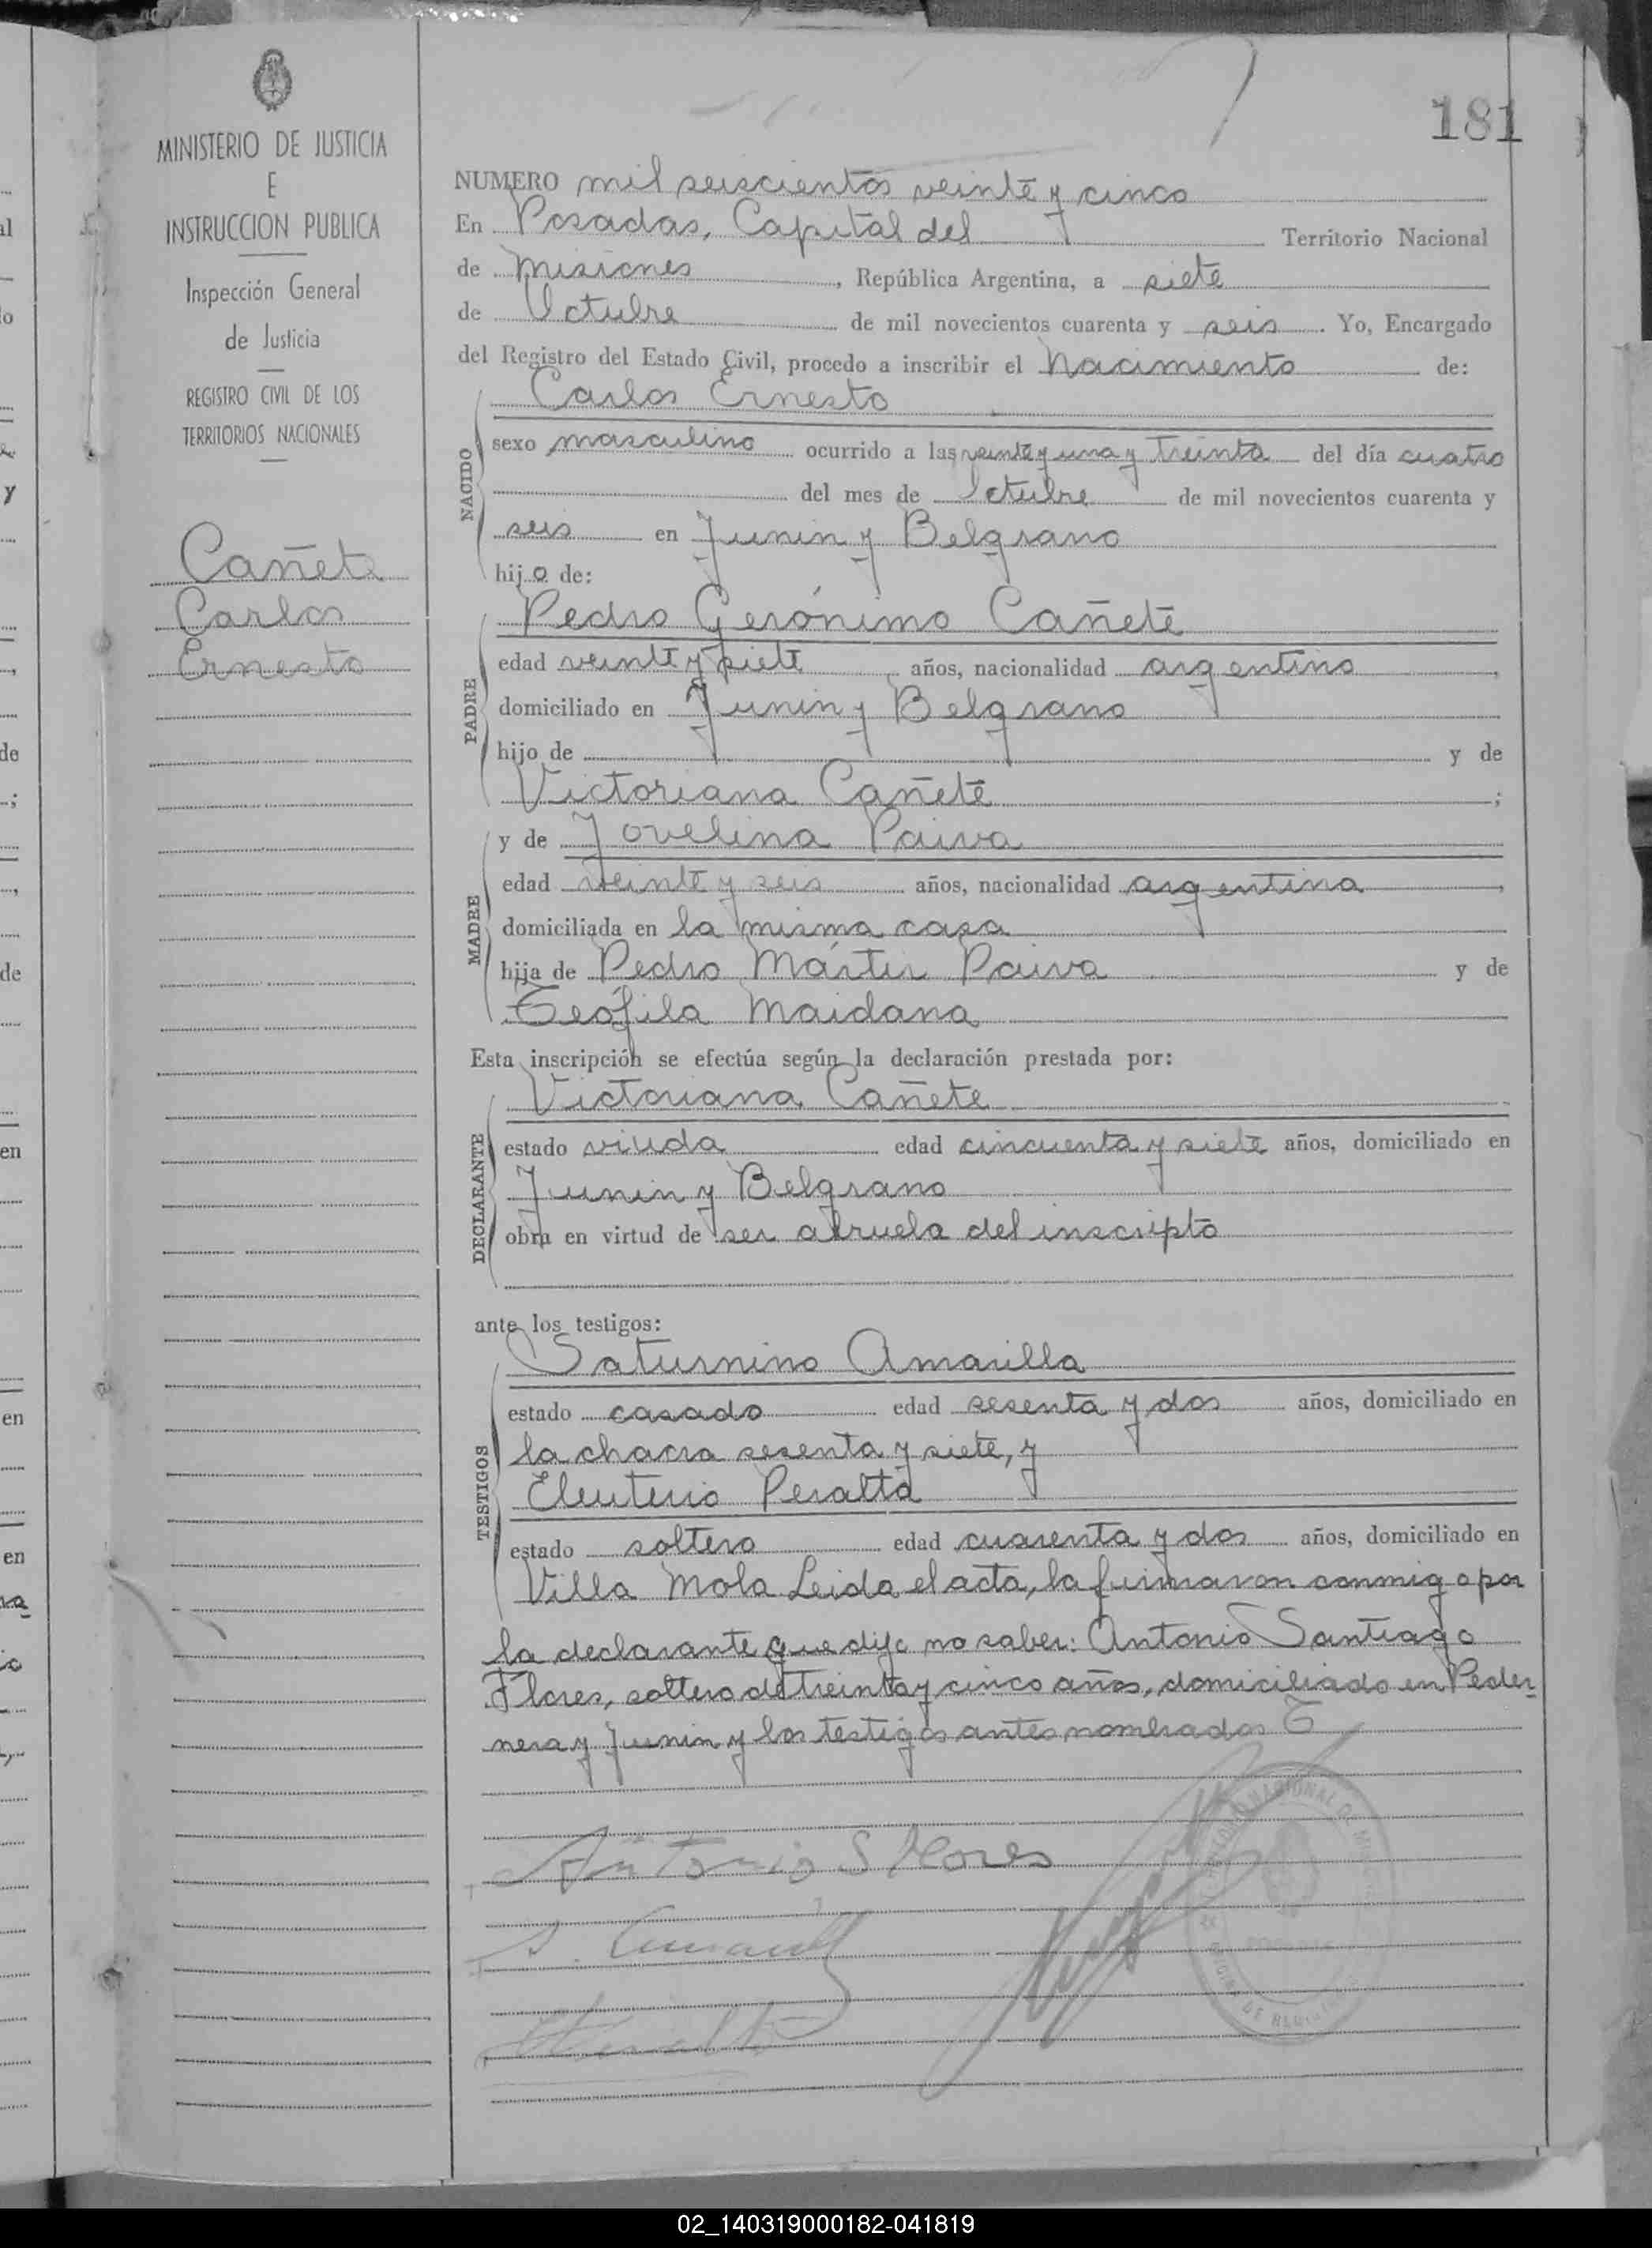 181
MINISTERIO DE JUSTICIA
E
INSTRUCCION PUBLICA
Inspección General
de Justicia
REGISTRO CIVIL DE LOS
TERRITORIOS NACIONALES
Cañete
Carlos
Ernesto
NUMERO mil seiscientos veinte y cinco
En Posadas, Capital del Territorio Nacional
de Misiones, República Argentina, a siete
de Octubre de mil novecientos cuarenta y seis. Yo, Encargado
del Registro del Estado Civil, procedo a inscribir el Nacimiento de:
NACIDO
Carlos Ernesto
sexo masculino ocurrido a las veinte y una y treinta del día cuatro
del mes de Octubre de mil novecientos cuarenta y
seis en Junin y Belgrano
hijo de:
PADRE
Pedro Gerónimo Cañete
edad veinte y siete años, nacionalidad argentino
domiciliado en Junin y Belgrano
hijo de y de
Victoriana Cañete;
MADRE
y de Jovelina Paiva
edad veinte y seis años, nacionalidad argentina,
domiciliada en la misma casa
hija de Pedro Mártir Paiva y de
Teófila Maidana
Esta inscripción se efectúa según la declaración prestada por:
DECLARANTE
Victoriana Cañete
estado viuda edad cincuenta y siete años, domiciliado en
Junin y Belgrano
obra en virtud de ser abuela del inscripto
ante los testigos:
TESTIGOS
Saturnino Amarilla
estado casado edad sesenta y dos años, domiciliado en
la chacra sesenta y siete, y
Eleuterio Peralta
estado soltero edad cuarenta y dos años, domiciliado en
Villa Mola Leida el acta, la firmaron conmigo por
la declarante que dijo no saber: Antonio Santiago
Flores, soltero de treinta y cinco años, domiciliado en Peder-
nera y Junin y los testigos antes nombrados
Antonio S Flores
02_140319000182-041819